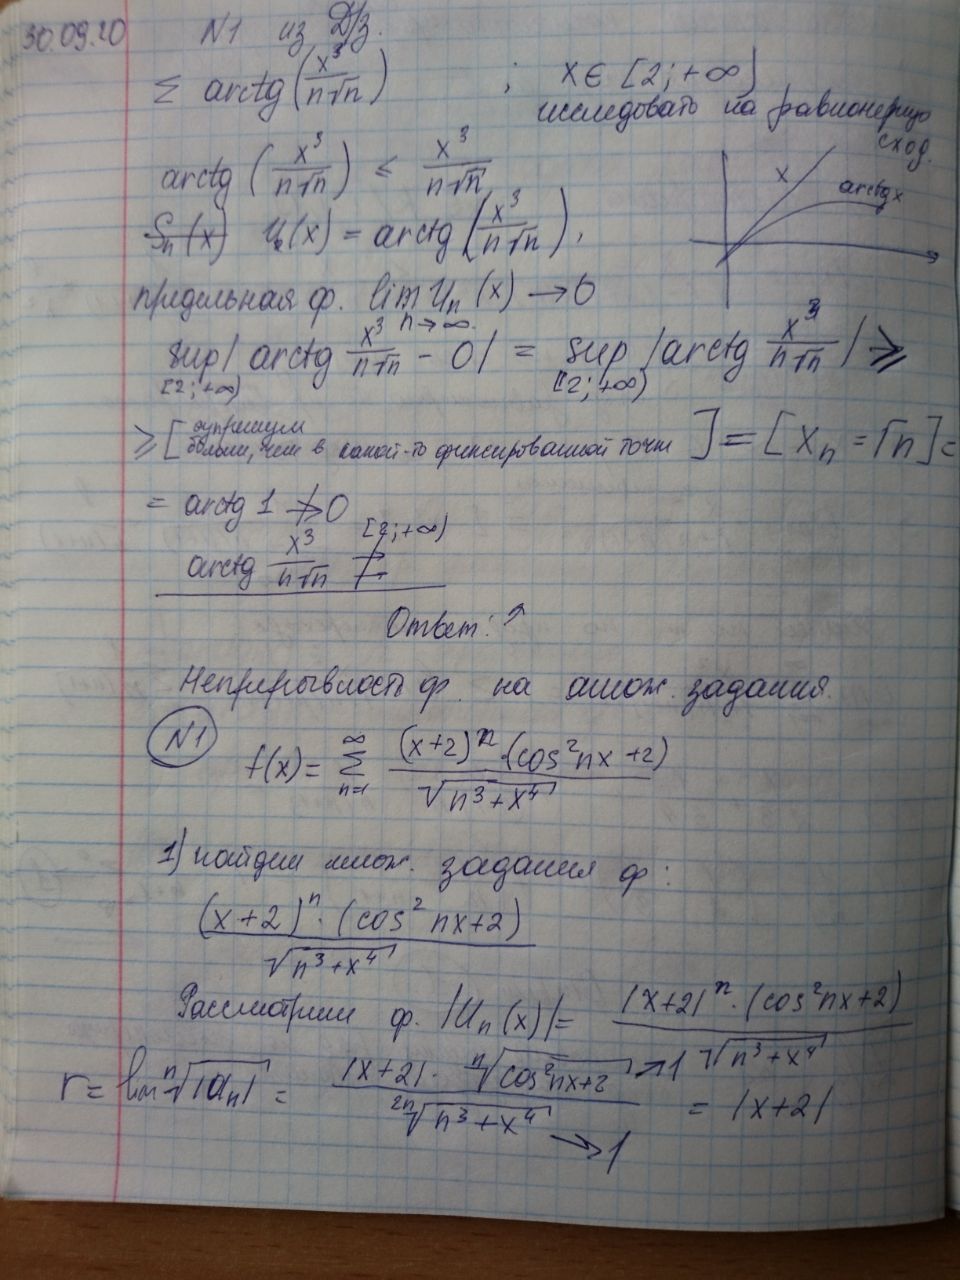 30.09.20
N1 из Д/з.
Σ arctg(x³/(n√n)) ; x ∈ [2; +∞)
исследовать на равномерную
сход.
arctg(x³/(n√n)) ≤ x³/(n√n)
x arctg x
Sₙ(x) Uₙ(x) = arctg(x³/(n√n)),
предельная ф. lim Uₙ(x) → 0
n→∞
sup | arctg x³/(n√n) - 0 | = sup | arctg x³/(n√n) | ≥
[2; +∞) [2; +∞)
≥ [ супремум больше, чем в какой-то фиксированной точке ] = [xₙ = √n] =
= arctg 1 ↛ 0
arctg x³/(n√n) ⇉̸ [2; +∞)
Ответ: ↑
Непрерывность ф. на множ. задания.
N1 f(x) = Σ_{n=1}^{∞} (x+2)ⁿ·(cos²nx+2)/√(n³+x⁴)
1) найдем множ. задания ф:
(x+2)ⁿ·(cos²nx+2)/√(n³+x⁴)
Рассмотрим ф. |Uₙ(x)| = |x+2|ⁿ·(cos²nx+2)/√(n³+x⁴)
r = lim ⁿ√|aₙ| = |x+2|·ⁿ√(cos²nx+2) →1 / ²ⁿ√(n³+x⁴) →1 = |x+2|